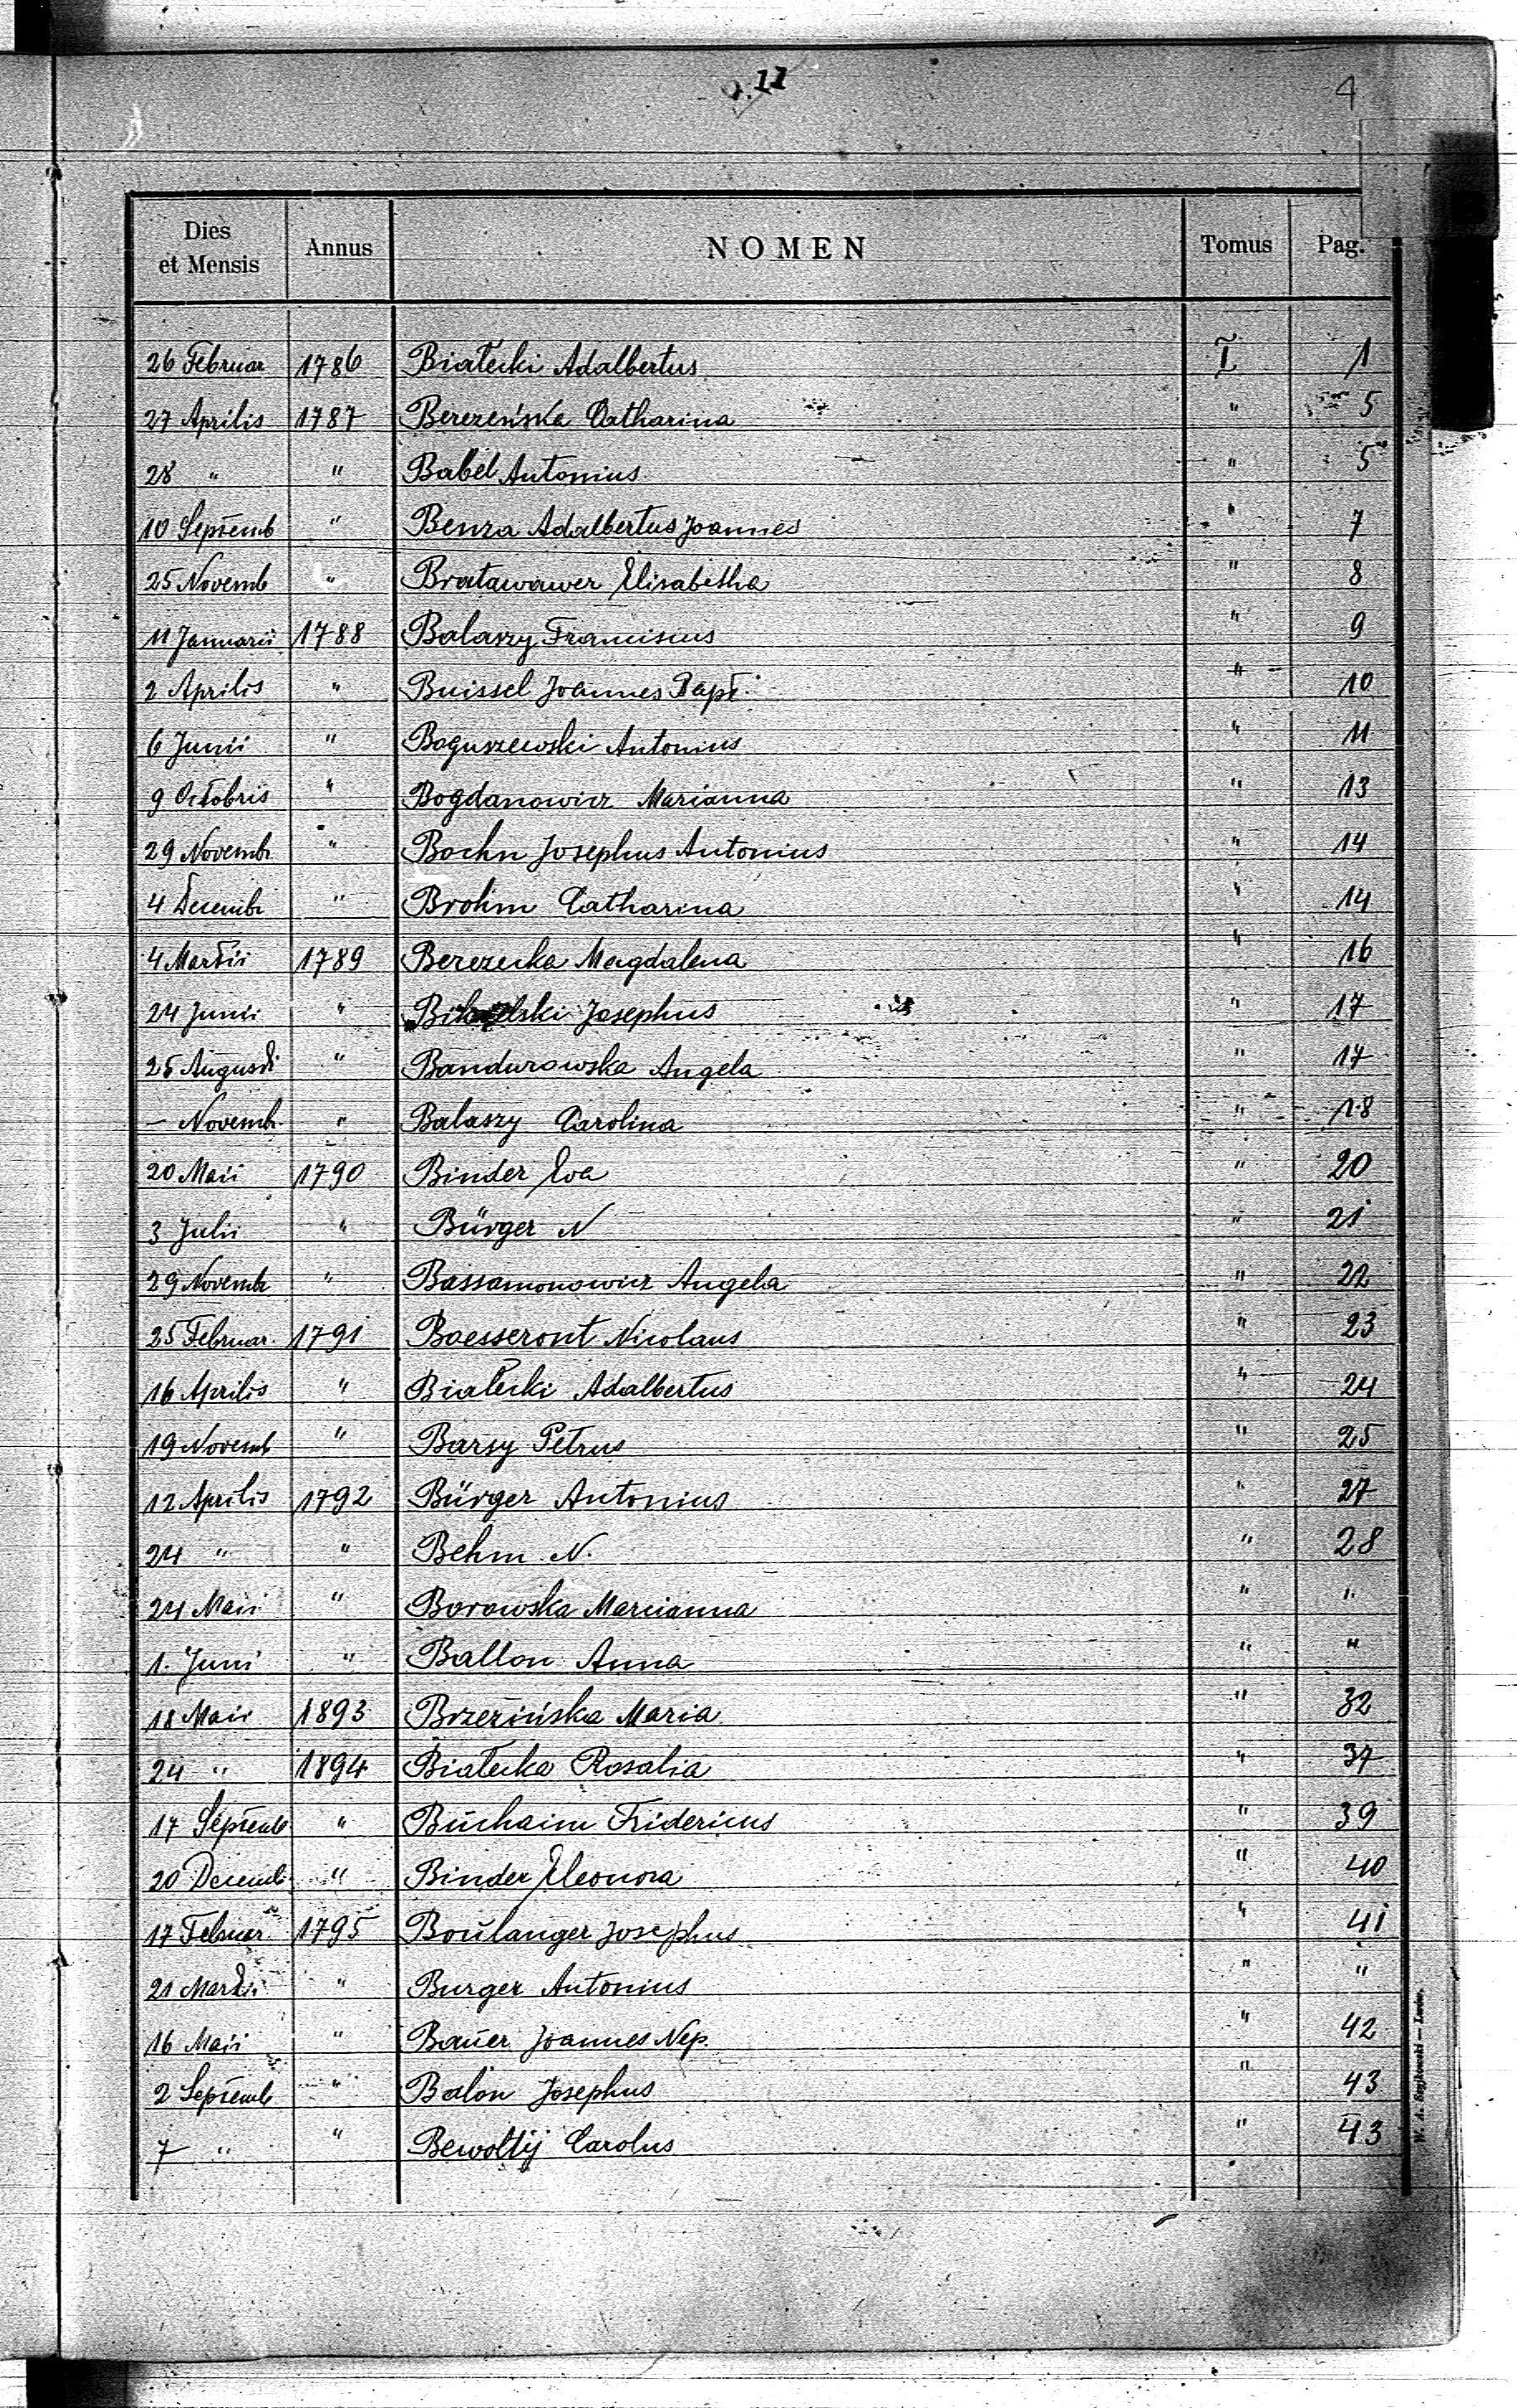 11
4
Dies et Mensis Annus NOMEN Tomus Pag.
26 Februar 1786 Białecki Adalbertus I 1
27 Aprilis 1787 Berezeńska Catharina " 5
28 " " Babel Antonius " 5
10 Septemb " Benza Adalbertus Joannes " 7
25 Novemb " Bratawawer Elisabetha " 8
11 Januarii 1788 Balaszy Franciscus " 9
2 Aprilis " Buissel Joannes Bapt. " 10
6 Junii " Boguszewski Antonius " 11
9 Octobris " Bogdanowicz Marianna " 13
29 Novembr " Bochn Josephus Antonius " 14
4 Decembr " Brohm Catharina " 14
4 Martii 1789 Berezecka Magdalena " 16
24 Junii " Josephus " 17
25 Augusti " Bandurowska Angela " 17
- Novemb. " Balaszy Carolina " 18
20 Maii 1790 Binder Eva " 20
3 Julii " Bürger N " 21
29 Novembr " Bassamonowicz Angela " 22
25 Februar. 1791 Boesseront Nicolaus " 23
16 Aprilis " Białecki Adalbertus " 24
19 Novemb " Barsy Petrus " 25
12 Aprilis 1792 Bürger Antonius " 27
24 " " Behm N. " 28
24 Maii " Borowska Marcianna " "
1. Juni " Ballon Anna " "
18 Maii 1893 Brzezińska Maria " 32
24 " 1894 Białecka Rosalia " 37
17 Septemb " Buchaim Fridericus " 39
20 Decemb " Binder Eleonora " 40
17 Februar. 1795 Boulanger Josephus " 41
21 Martii " Burger Antonius " "
16 Maii " Bauer Joannes Nep. " 42
2 Septemb " Balon Josephus " 43
7 " " Bewoltij Carolus " 43